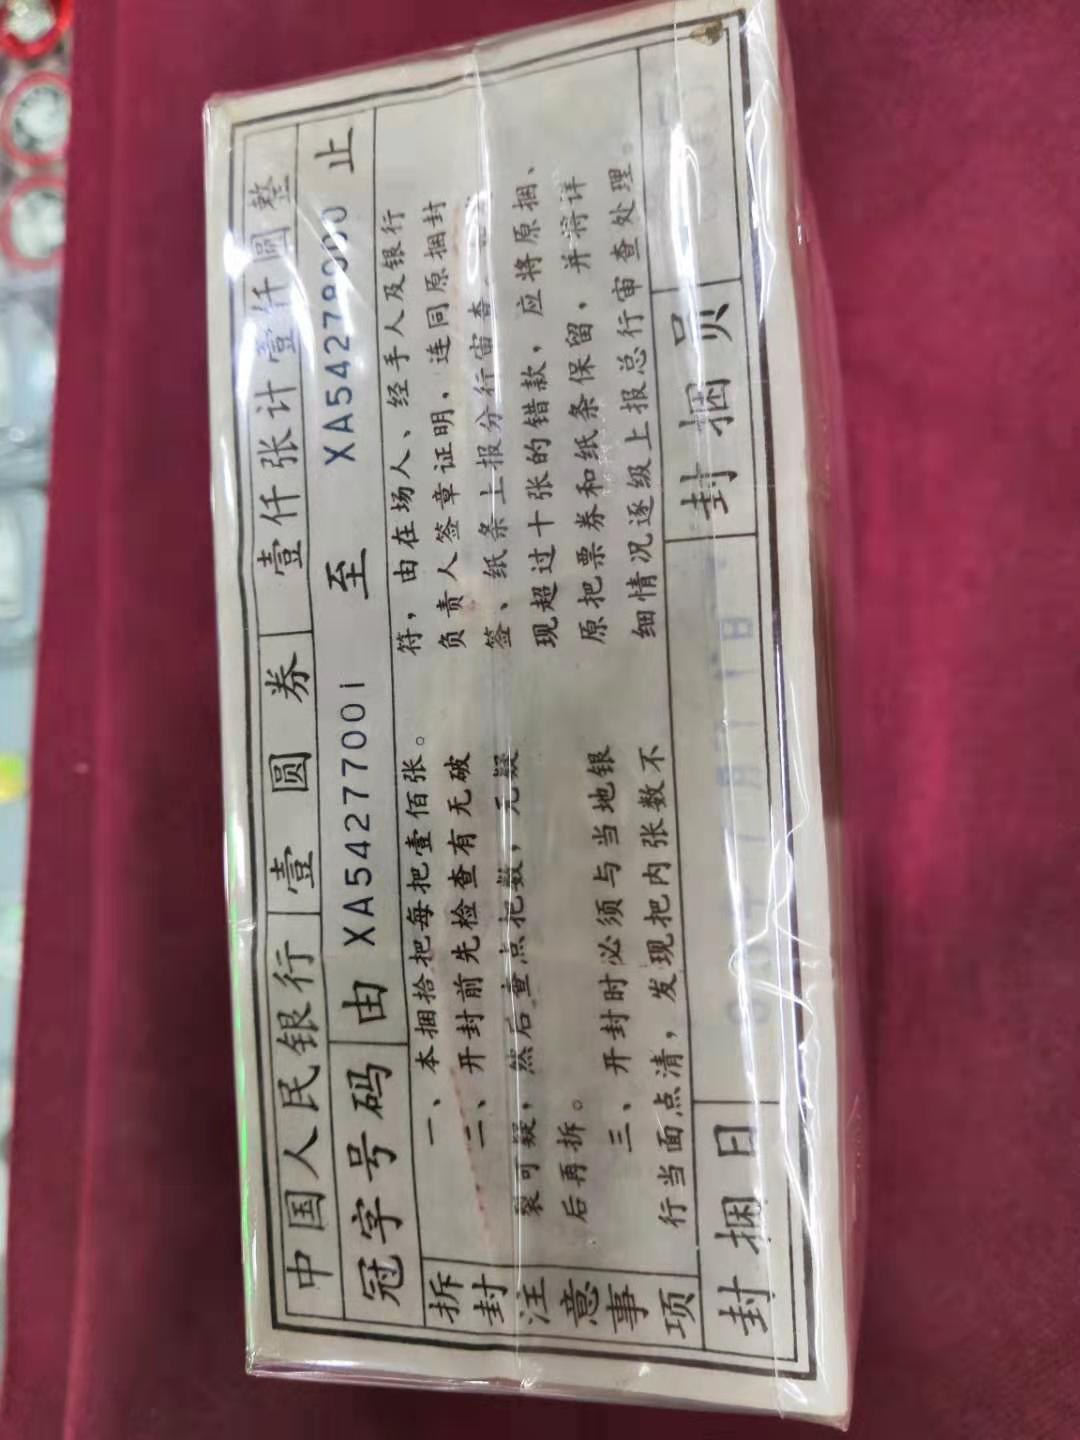 中国人民银行 壹圆券 壹仟张计壹仟圆整
冠字号码 由 XA54277001 至 XA54278000 止
拆封注意事项
一、本捆拾把每把壹佰张。
二、开封前先检查有无破
裂可疑，然后重点把数，无疑
后再拆。
三、开封时必须与当地银
行当面点清，发现把内张数不
符，由在场人、经手人及银行
负责人签章证明，连同原捆封
签、纸条上报分行审查。
现超过十张的错款，应将原捆、
原把票券和纸条保留，并将详
细情况逐级上报总行审查处理。
封捆日 封捆员